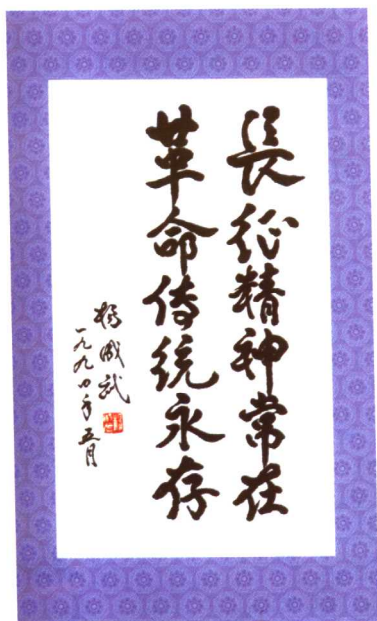 長征精神常在
革命传统永存
杨成武
一九九四年五月